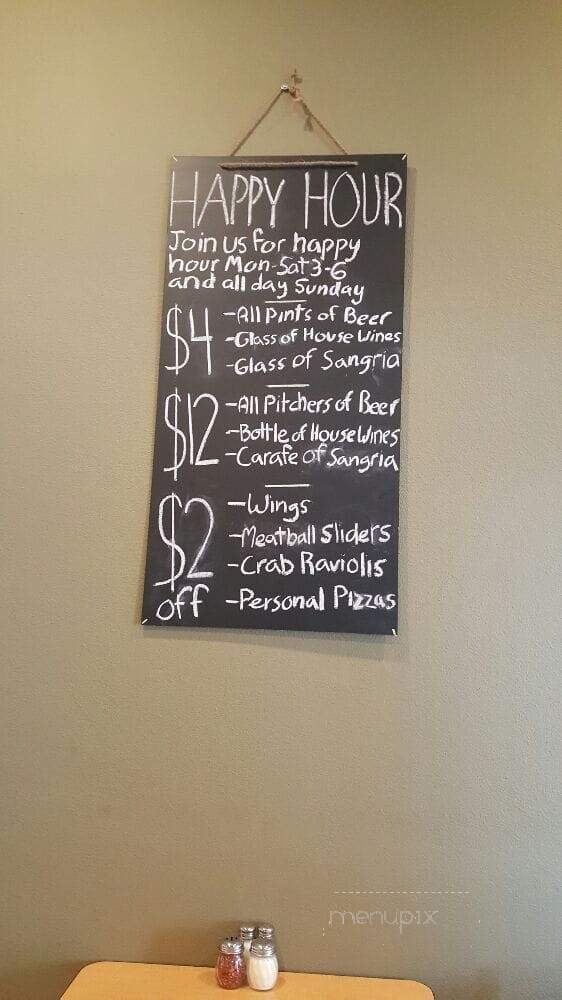 HAPPY HOUR
Join us for happy
hour Mon-Sat 3-6
and all day Sunday
$4 -All Pints of Beer
-Glass of House Wines
-Glass of Sangria
$12 -All Pitchers of Beer
-Bottle of House Wines
-Carafe of Sangria
$2 off -Wings
-Meatball Sliders
-Crab Raviolis
-Personal Pizzas
menupix